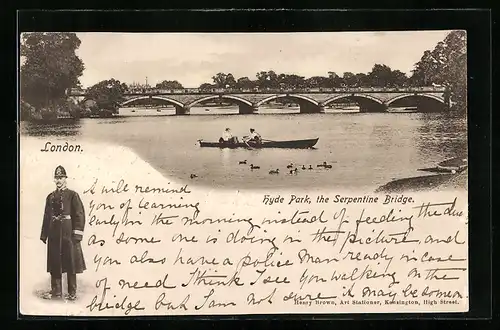 London.
Hyde Park, the Serpentine Bridge.
A will remind
you of learning
early in the morning instead of feeding the
as some one is doing in the picture, and
you also have a police man ready in case
of need I think I see you walking on the
bridge but I am not sure it may be some
Henry Brown, Art Stationer, Kensington, High Street.